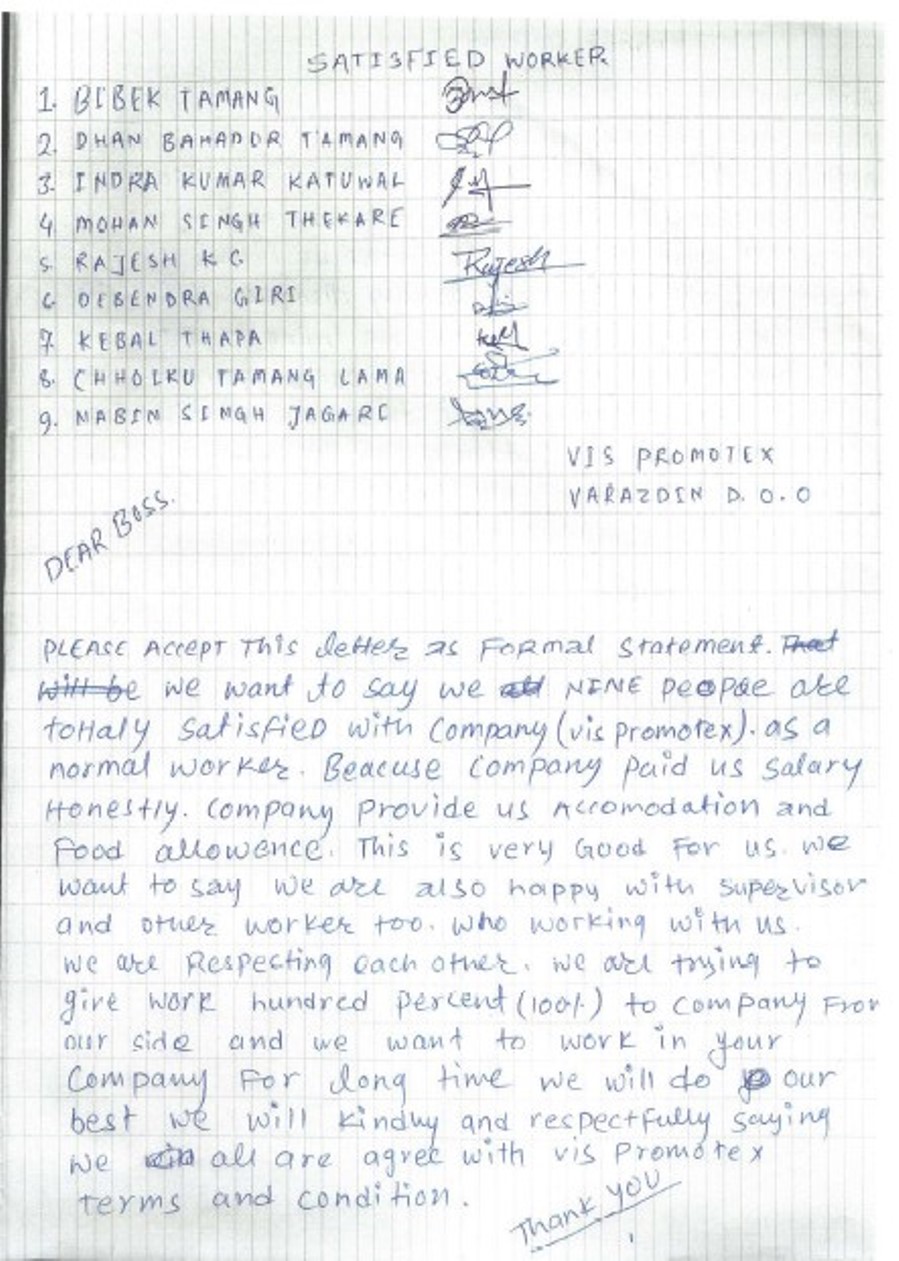 SATISFIED WORKER.
1. BIBEK TAMANG
2. DHAN BAHADUR TAMANG
3. INDRA KUMAR KATUWAL
4 MOHAN SINGH THEKARE
5. RAJESH K C Rajesh
6 DEBENDRA GIRI
7. KEBAL THAPA
8. CHHOIKU TAMANG LAMA
9. NABIN SINGH JAGARI
VIS PROMOTEX
VARAZDIN D.O.O
DEAR BOSS.
PLEASE ACCEPT This letter as Formal Statement. That
will be we want to say we all NINE people are
tottaly Satisfied with Company (vis promotex). as a
normal worker. Beacuse Company Paid us Salary
Honestly. Company Provide us Accomodation and
Food allowence. This is very Good For us. we
want to say we are also happy with supervisor
and other worker too. who working with us.
we are Respecting each other. we are trying to
give work hundred percent (100%) to Company From
our side and we want to work in your
Company For long time we will do our
best we will kindly and respectfully saying
we all are agree with vis Promotex
terms and condition.
Thank you